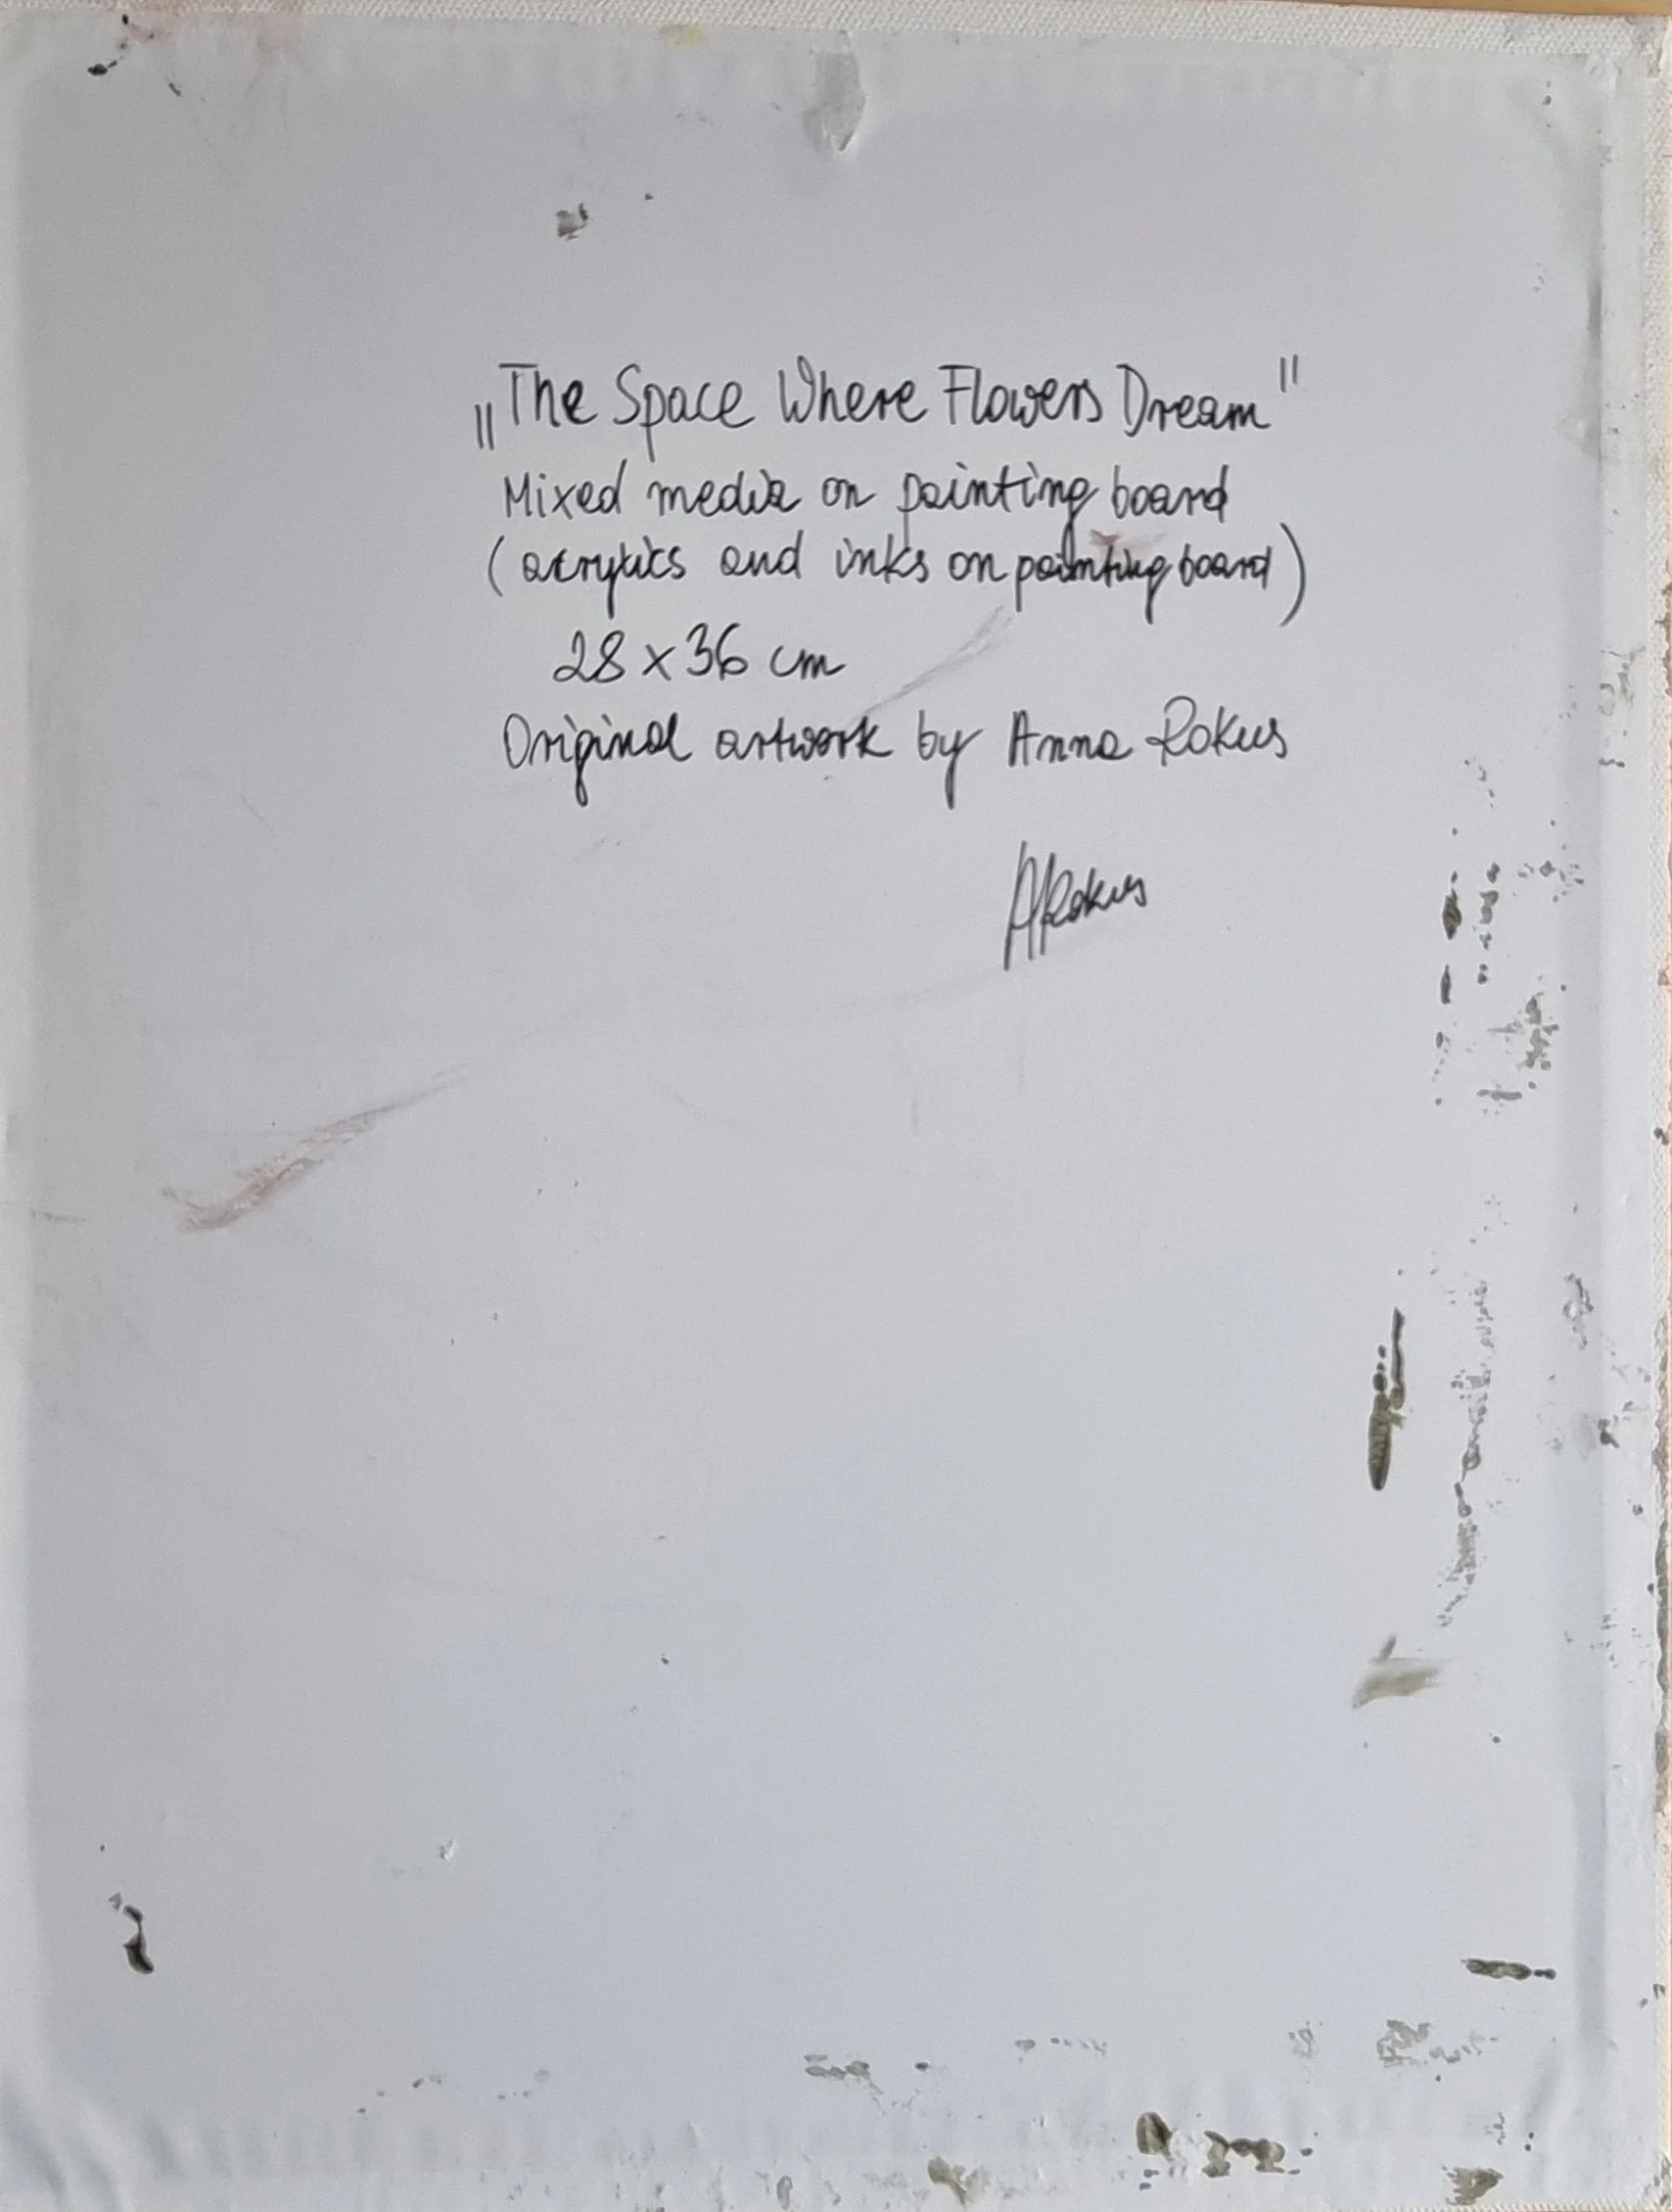 „The Space Where Flowers Dream"
Mixed media on painting board
(acrylics and inks on painting board)
28 x 36 cm
Original artwork by Anna Rokus
ARokus